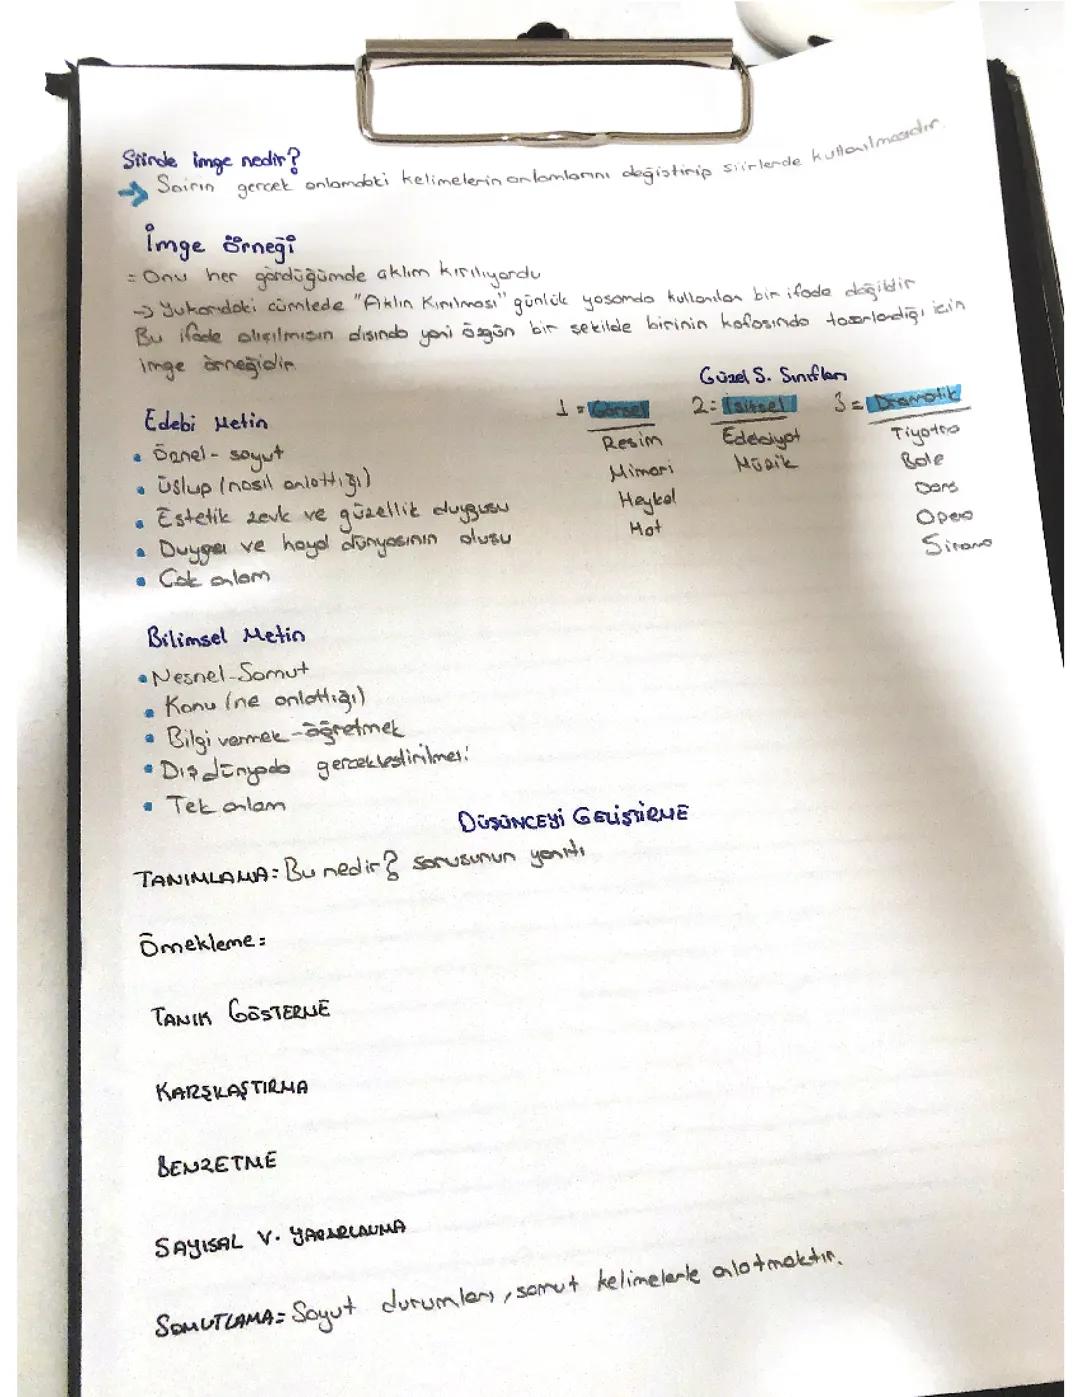 Şiirde imge nedir?
→ Şairin gerçek anlamdaki kelimelerin anlamlarını değiştirip şiirlerde kullanılmasıdır.
İmge Örneği
= Onu her gördüğümde aklım kırılıyordu
→ Yukarıdaki cümlede "Aklın Kırılması" günlük yaşamda kullanılan bir ifade değildir
Bu ifade alışılmışın dışında yani özgün bir şekilde birinin kafasında tasarlandığı için
imge örneğidir.
Güzel S. Sınıfları
1 = Görsel
Resim
Mimari
Heykel
Hat
2 = İşitsel
Edebiyat
Müzik
3 = Dramatik
Tiyatro
Bale
Dans
Opera
Sinema
Edebi Metin
• Öznel - soyut
• Üslup (nasıl anlattığı)
• Estetik zevk ve güzellik duygusu
• Duygu ve hayal dünyasının oluşu
• Çok anlam
Bilimsel Metin
• Nesnel - Somut
• Konu (ne anlattığı)
• Bilgi vermek - öğretmek
• Dış dünyada gerçekleştirilmesi
• Tek anlam
DÜŞÜNCEYİ GELİŞTİRME
TANIMLAMA: Bu nedir? sorusunun yanıtı
Örnekleme:
TANIK GÖSTERME
KARŞILAŞTIRMA
BENZETME
SAYISAL V. YARARLANMA
SOMUTLAMA= Soyut durumları, somut kelimelerle anlatmaktır.